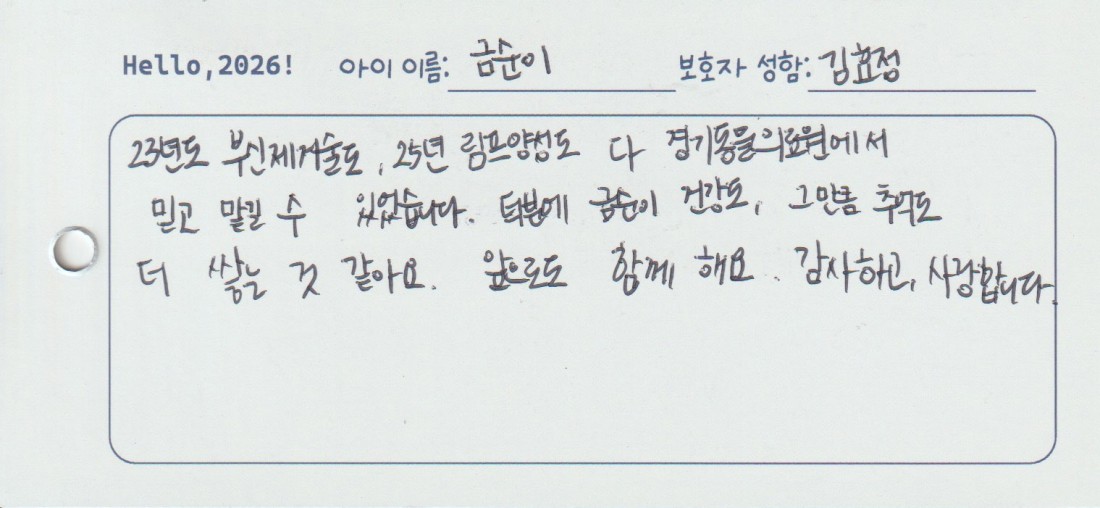 Hello,2026! 아이 이름: 금순이 보호자 성함: 김효정
23년도 부신제거술도, 25년 림프양성도 다 경기동물의료원에서
믿고 맡길 수 있었습니다. 덕분에 금순이 건강도, 그만큼 추억도
더 쌓는 것 같아요. 앞으로도 함께 해요. 감사하고, 사랑합니다.